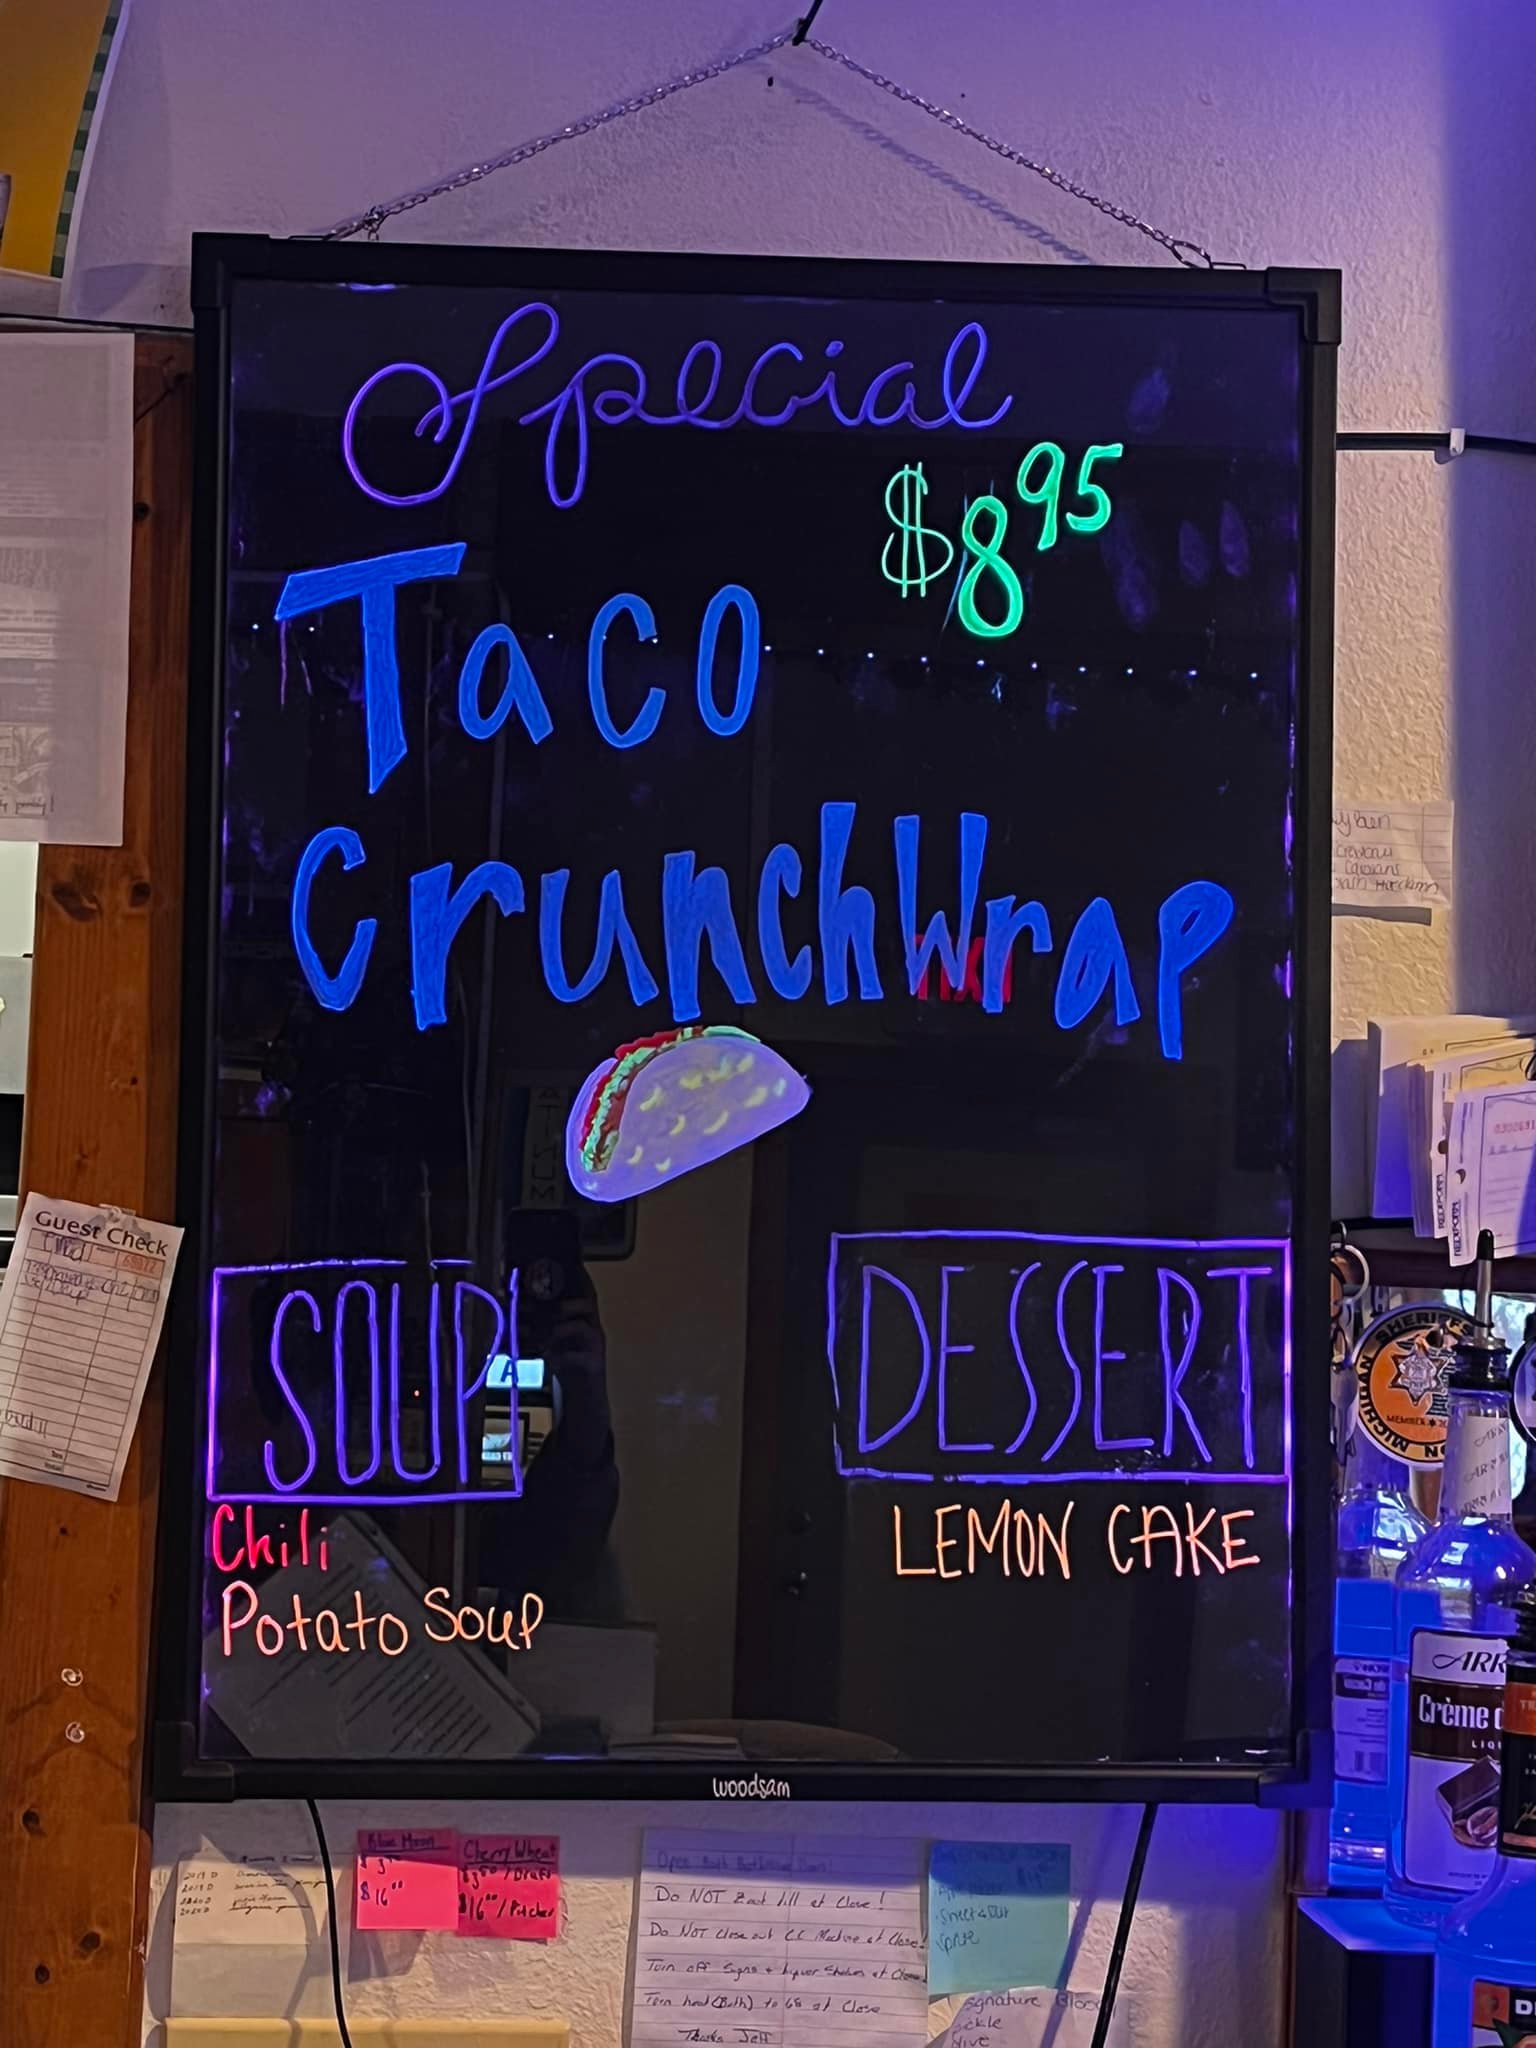 Special
$8.95
Taco
CrunchWrap
SOUP
DESSERT
Chili
LEMON CAKE
Potato Soup
woodsam
Guest Check
68072
MICHIGAN SHERIFFS
MEMBER
ARR
Crème d
LIQU
REDIFORM
REDIFORM
Blue Moon
$16.00
Cherry Wheat
$3.50/Draft
$16.00/Pitcher
Do NOT Zout till at Close!
Do NOT Close out CC Machine at Close!
Turn off Signs + Liquor Shelves at Close
Turn heat (Both) to 68 at Close
Thanks Jeff
Sprite
Signature Bloody